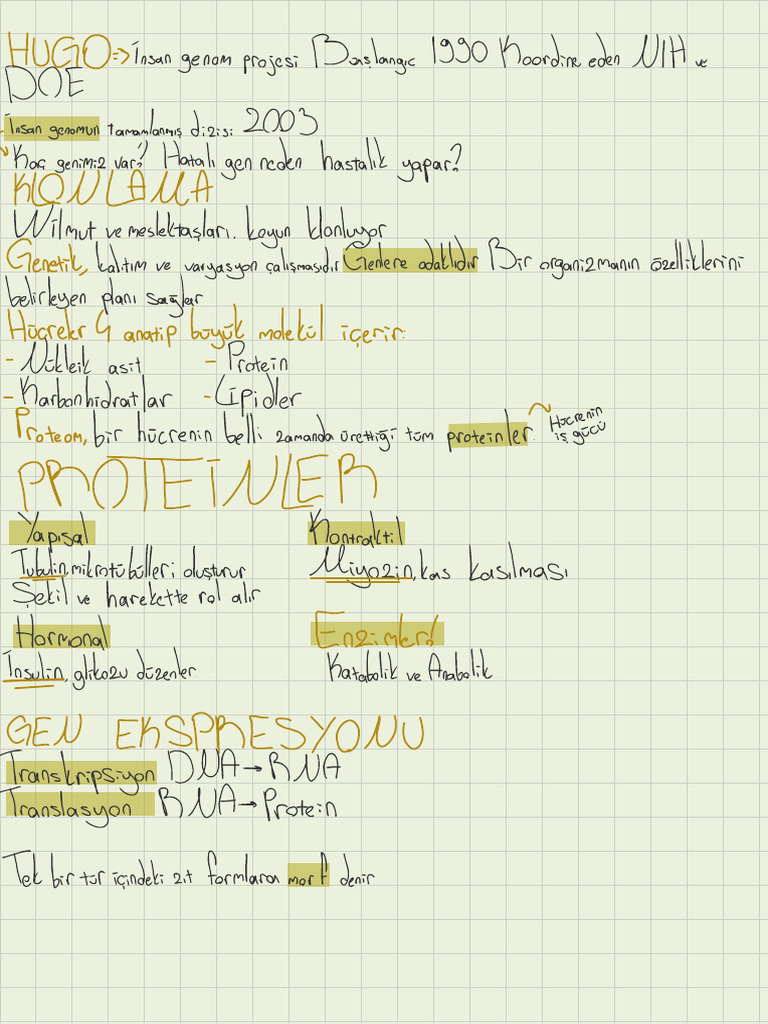 HUGO => İnsan genom projesi Başlangıc 1990 Koordine eden NIH ve
DOE
İnsan genomun tamamlanmış dizisi 2003
Kaç genimiz var? Hatalı gen neden hastalık yapar?
KLONLAMA
Wilmut ve meslektaşları. koyun klonluyor
Genetik, kalıtım ve varyasyon çalışmasıdır Genlere odaklıdır Bir organizmanın özelliklerini
belirleyen planı sağlar
Hücreler 4 anatip büyük molekül içerir:
- Nükleik asit - Protein
- Karbonhidratlar - Lipidler
Proteom, bir hücrenin belli zamanda ürettiği tüm proteinler. Hücrenin
iş gücü
PROTEİNLER
Yapısal Kontraktil
Tubulin, mikrotübülleri oluşturur Miyozin, kas kasılması
Şekil ve harekette rol alır
Hormonal Enzimler!
İnsulin, glikozu düzenler Katabolik ve Anabolik
GEN EKSPRESYONU
Transkripsiyon DNA → RNA
Translasyon RNA → Protein
Tek bir tür içindeki zıt formlara morf denir